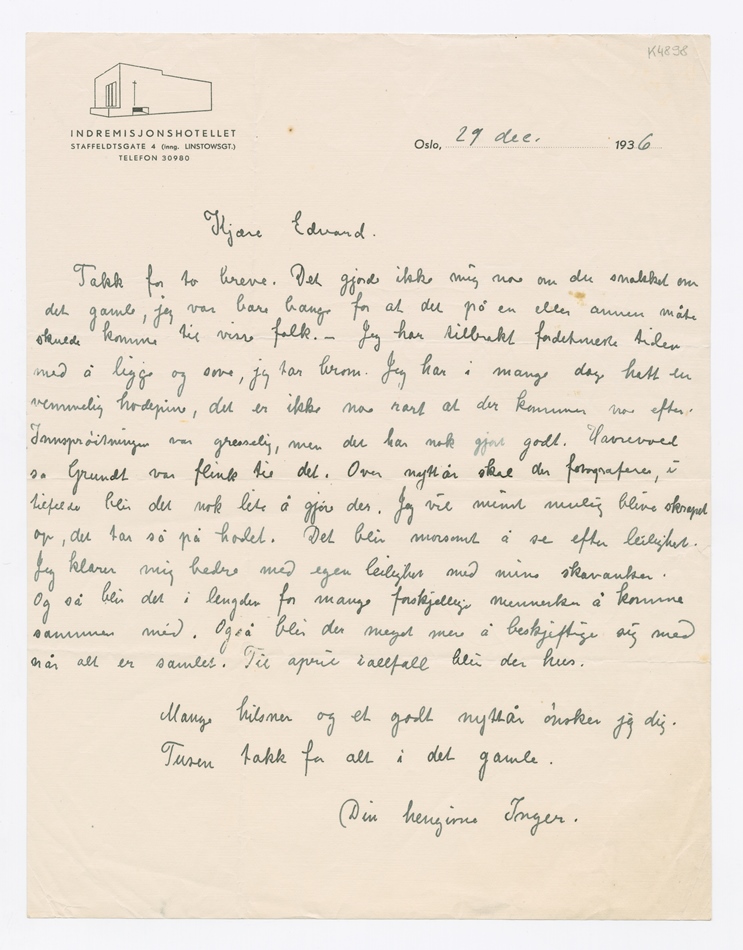 K4898
INDREMISJONSHOTELLET
STAFFELDTSGATE 4 (inng. LINSTOWSGT.)
TELEFON 30980
Oslo, 29 dec. 1936
Kjære Edvard.
Takk for to breve. Det gjorde ikke mig noe om du snakket om
det gamle, jeg var bare bange for at det på en eller annen måte
skulde komme til visse folk. – Jeg har tilbrakt fordetmeste tiden
med å ligge og sove, jeg tar brom. Jeg har i mange dage hatt en
vemmelig hodepine, det er ikke noe rart at der kommer noe efter.
Innsprøitningen var gresselig, men det har nok gjort godt. Havrevold
sa Grundt var flink til det. Over nyttår skal der fotograferes, i
tilfelde blir det nok lite å gjøre der. Jeg vil minst mulig blive skrapet
op, det tar så på hodet. Det blir morsomt å se efter leilighet.
Jeg klarer mig bedre med egen leilighet med mine skavanker.
Og så blir det i lengden for mange forskjellige mennesker å komme
sammen med. Også blir der meget mere å beskjeftige sig med
når alt er samlet. Til april iallfall blir der hus.
Mange hilsner og et godt nyttår ønsker jeg dig.
Tusen takk for alt i det gamle.
Din hengivne Inger.